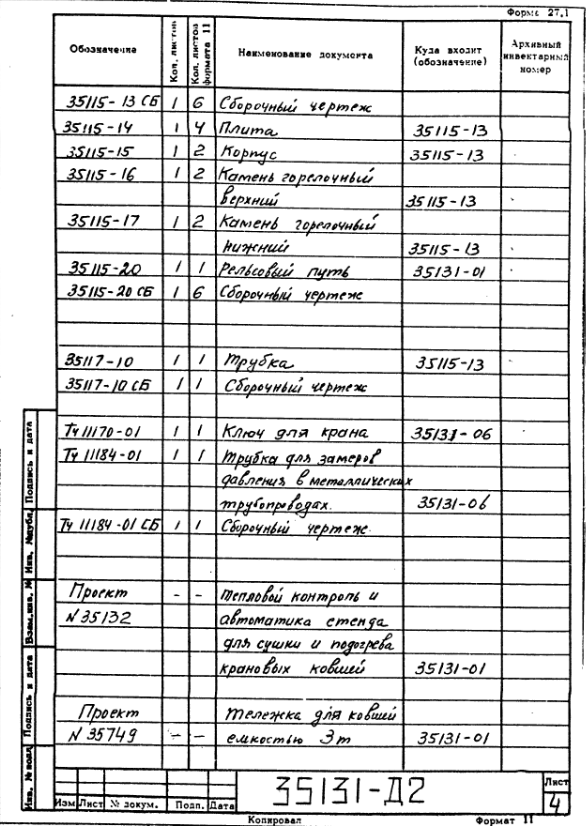 Форма 27.1
Обозначение Кол. листов Кол. листов формата 11 Наименование документа Куда входит (обозначение) Архивный инвентарный номер
35115-13 СБ 1 6 Сборочный чертеж
35115-14 1 4 Плита 35115-13
35115-15 1 2 Корпус 35115-13
35115-16 1 2 Камень горелочный
верхний 35115-13
35115-17 1 2 Камень горелочный
нижний 35115-13
35115-20 1 1 Рельсовый путь 35131-01
35115-20 СБ 1 6 Сборочный чертеж
35117-10 1 1 Трубка 35115-13
35117-10 СБ 1 1 Сборочный чертеж
Тч 11170-01 1 1 Ключ для крана 35131-06
Тч 11184-01 1 1 Трубка для замеров
давления в металлических
трубопроводах. 35131-06
Тч 11184-01 СБ 1 1 Сборочный чертеж
Проект - - Тепловой контроль и
N 35132 автоматика стенда
для сушки и подогрева
крановых ковшей 35131-01
Проект Тележка для ковшей
N 35749 - - емкостью 3т 35131-01
Инв. № подл. Подпись и дата Взам. инв. № Инв. № дубл. Подпись и дата
Изм Лист № докум. Подп. Дата
35131-Д2
Лист
4
Копировал Формат 11